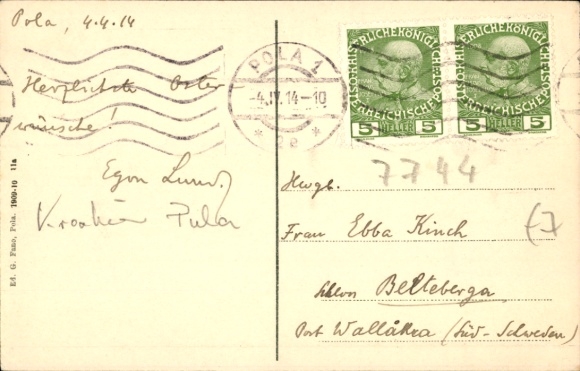 Pola, 4.4.14
Herzlichste Oster
wünsche!
Egon Lund.
Kroatien Pula
Ed. G. Fano, Pola. 1909-10 11a
POLA 1
-4.IV.14-10
* 2e *
KAISERLICHEKÖNIGLICHE
ÖSTERREICHISCHE POST
5 HELLER 5
KAISERLICHEKÖNIGLICHE
ÖSTERREICHISCHE POST
5 HELLER 5
7744
Hwgb.
Frau Ebba Kinch
Schloss Belteberga
Post Wallåkra (Süd-Schweden)